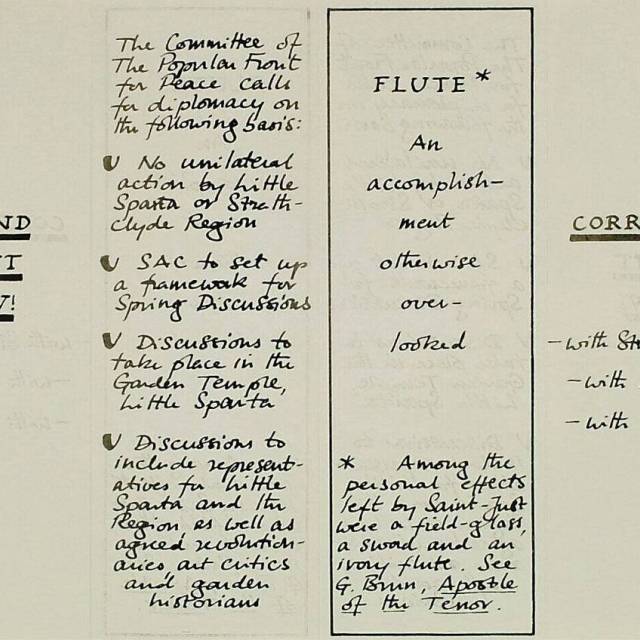 ND
T
!
The Committee of
The Popular Front
for Peace calls
for diplomacy on
the following basis:
No unilateral
action by Little
Sparta or Strath-
clyde Region
SAC to set up
a framework for
Spring Discussions
Discussions to
take place in the
Garden Temple,
Little Sparta
Discussions to
include represent-
atives for Little
Sparta and the
Region as well as
agreed revolution-
aries, art critics
and garden
historians
FLUTE*
An
accomplish-
ment
otherwise
over-
looked
* Among the
personal effects
left by Saint-Just
were a field-glass,
a sword and an
ivory flute. See
G. Brun, Apostle
of the Tenor.
CORR
- with Str
- with
- with